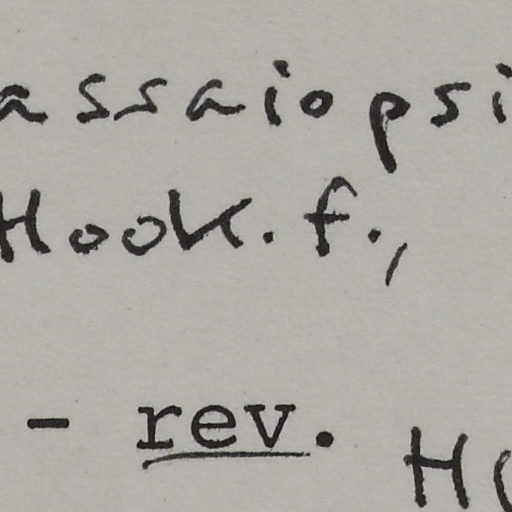 assaiopsi
Hook.f.,
- rev. H